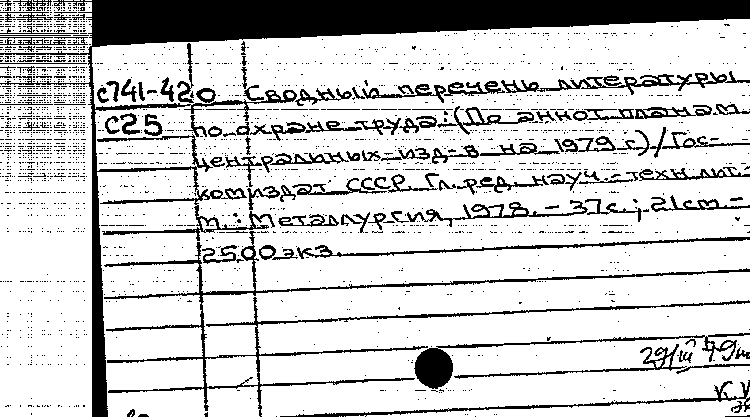 с741-420 Сводный перечень литературы
С25 по охране труда: (По аннот. планам
центральных изд-в на 1979 г.)/Гос-
комиздат СССР. Гл. ред. науч.-техн. лит.-
М.: Металлургия, 1978. - 37с.; 21см. -
2500экз.
29/III 79